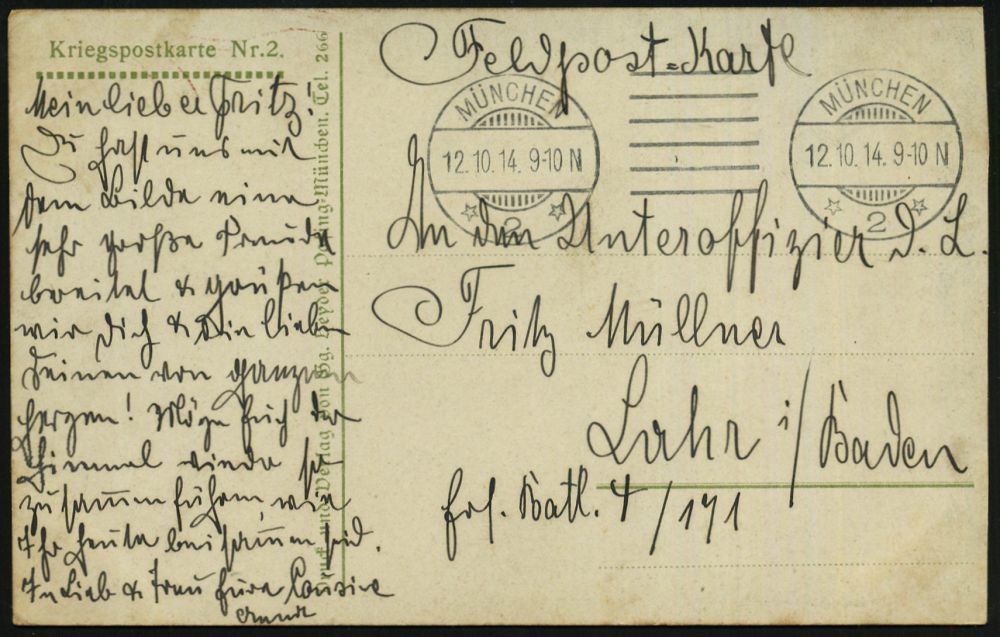 Kriegspostkarte Nr. 2.
Mein lieber Fritz!
Du hast uns mit
dem Bilde eine
sehr große Freude
bereitet & grüßen
wir Dich & die lieben
Deinen von ganzem
Herzen! Möge Euch der
Himmel wieder so
zusammen führen, wie
Ihr heute beisammen seid.
In Lieb & Treu Eure
Druck und Verlag von Gg. Heyder, München. Tel. 266
Feldpost-Karte
MÜNCHEN
12.10.14. 9-10 N
2
MÜNCHEN
12.10.14. 9-10 N
2
An den Unteroffizier d. L.
Fritz Müllner
Lahr i/Baden
Ers. Batl. 4/171